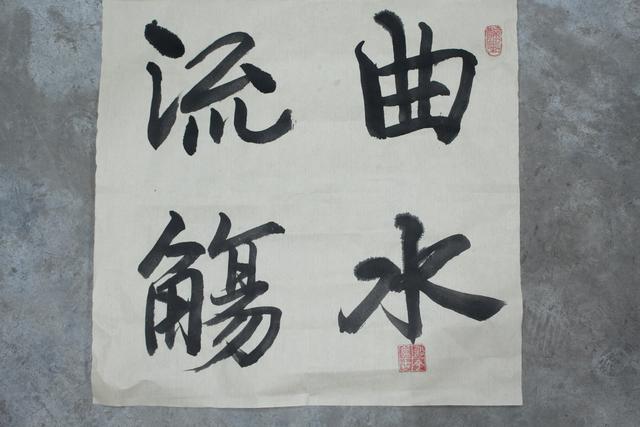 曲水
流觴